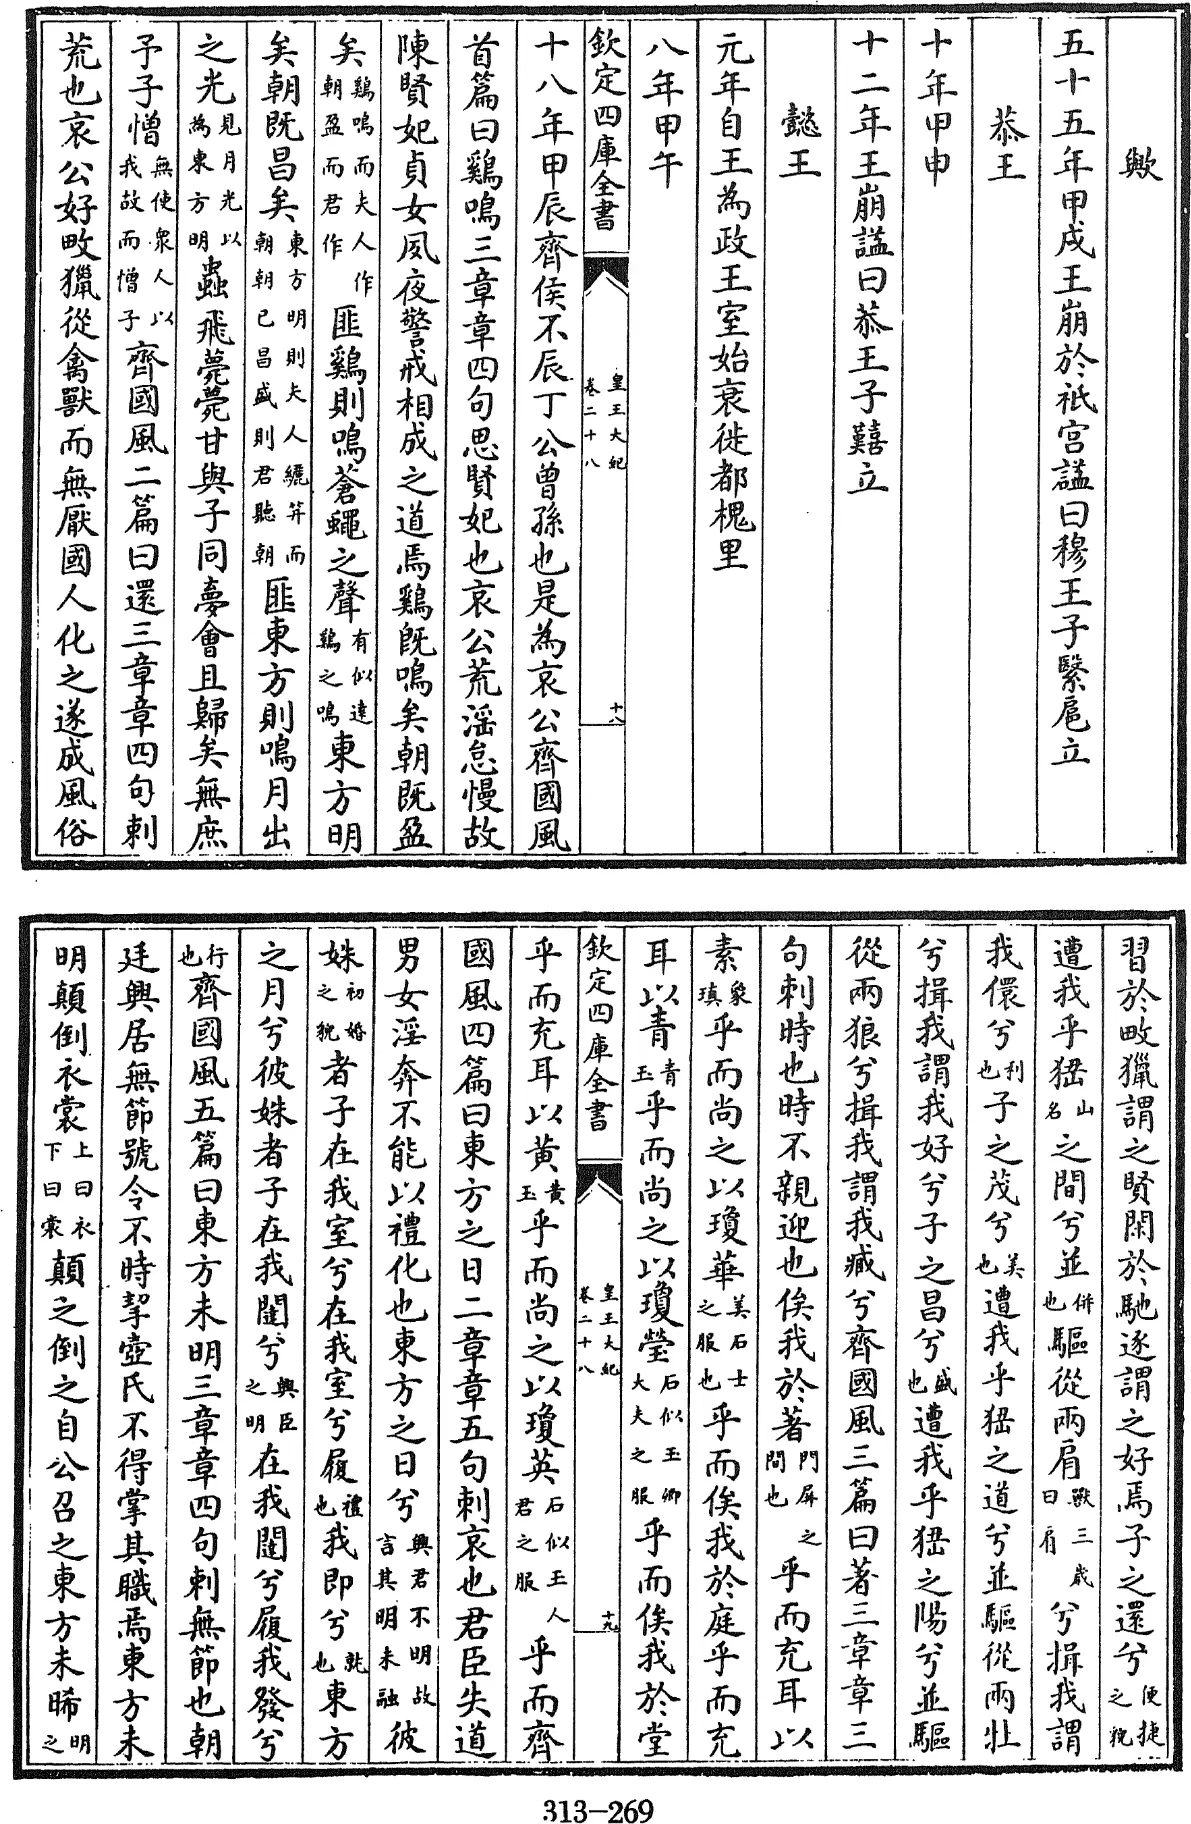 歟
五十五年甲戌王崩於祇宮諡曰穆王子繄扈立
恭王
十年甲申
十二年王崩諡曰恭王子囏立
懿王
元年自王為政王室始衰徙都槐里
八年甲午
欽定四庫全書 皇王大紀 卷二十八 十八
十八年甲辰齊侯不辰丁公曾孫也是為哀公齊國風
首篇曰鷄鳴三章章四句思賢妃也哀公荒淫怠慢故
陳賢妃貞女夙夜警戒相成之道焉鷄旣鳴矣朝旣盈
矣鷄鳴而夫人作朝盈而君作匪鷄則鳴蒼蠅之聲有似逺鷄之鳴東方明
矣朝旣昌矣東方明則夫人纚笄而朝朝已昌盛則君聽朝匪東方則鳴月出
之光見月光以為東方明蟲飛薨薨甘與子同夢會且歸矣無庶
予子憎無使衆人以我故而憎子齊國風二篇曰還三章章四句刺
荒也哀公好畋獵從禽獸而無厭國人化之遂成風俗
習於畋獵謂之賢閑於馳逐謂之好焉子之還兮便捷之貌
遭我乎猺山名之間兮並併也驅從兩肩獸三歲曰肩兮揖我謂
我儇兮利也子之茂兮美也遭我乎猺之道兮並驅從兩牡
兮揖我謂我好兮子之昌兮盛也遭我乎猺之陽兮並驅
從兩狼兮揖我謂我臧兮齊國風三篇曰著三章章三
句刺時也時不親迎也俟我於著門屏之間也乎而充耳以
素象瑱乎而尚之以瓊華美石士之服也乎而俟我於庭乎而充
耳以青青玉乎而尚之以瓊瑩石似玉卿大夫之服乎而俟我於堂
欽定四庫全書 皇王大紀 卷二十八 十九
乎而充耳以黃黃玉乎而尚之以瓊英石似玉人君之服乎而齊
國風四篇曰東方之日二章章五句刺哀也君臣失道
男女淫奔不能以禮化也東方之日兮興君不明故言其明未融彼
姝初婚之貌者子在我室兮在我室兮履禮也我即兮就也東方
之月兮彼姝者子在我闥兮興臣之明在我闥兮履我發兮
行也齊國風五篇曰東方未明三章章四句刺無節也朝
廷興居無節號令不時挈壺氏不得掌其職焉東方未
明顛倒衣裳上曰衣下曰裳顛之倒之自公召之東方未晞明之
313-269